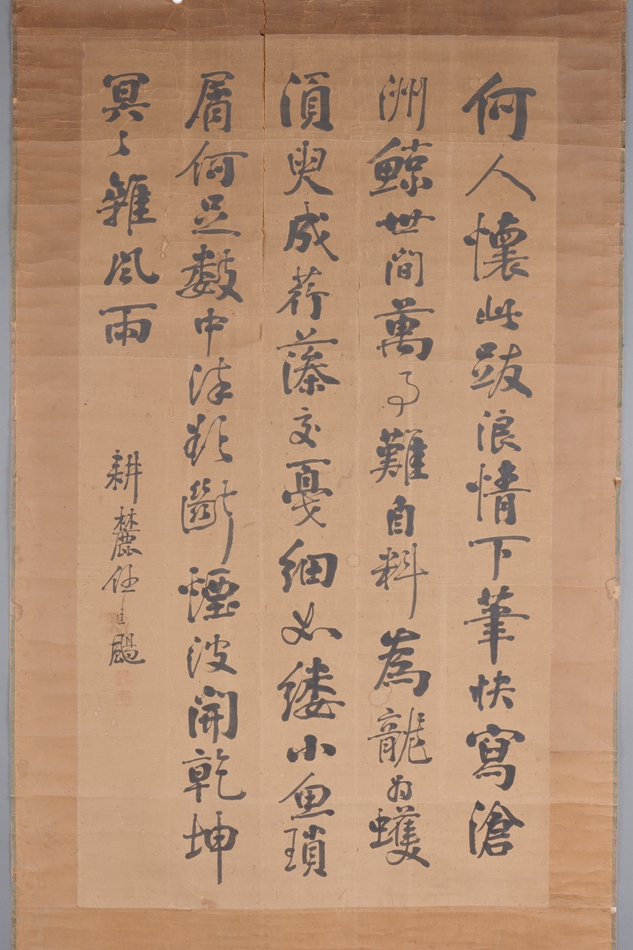 何人懷此跋浪情下筆快寫滄
洲鯨世間萬事難自料為龍為蠖
須臾成荇藻交戛細如縷小魚瑣
屑何足數中洋欻斷煙波開乾坤
冥々雜風雨
耕麓任